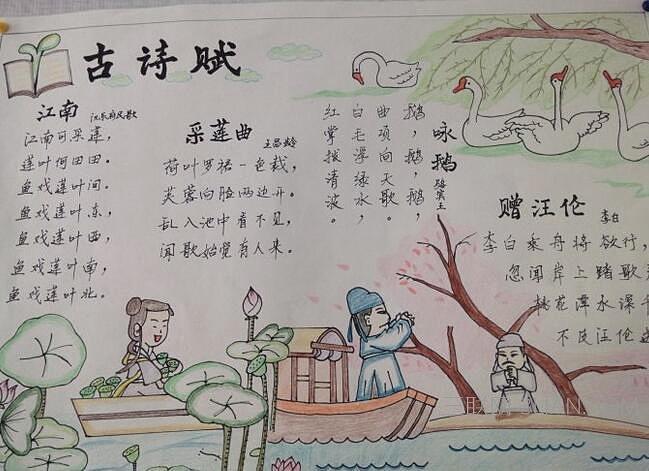 古诗赋
江南 汉乐府民歌
江南可采莲，
莲叶何田田。
鱼戏莲叶间。
鱼戏莲叶东，
鱼戏莲叶西，
鱼戏莲叶南，
鱼戏莲叶北。
采莲曲 王昌龄
荷叶罗裙一色裁，
芙蓉向脸两边开。
乱入池中看不见，
闻歌始觉有人来。
咏鹅 骆宾王
鹅，鹅，鹅，
曲项向天歌。
白毛浮绿水，
红掌拨清波。
赠汪伦 李白
李白乘舟将欲行，
忽闻岸上踏歌
桃花潭水深千
不及汪伦送